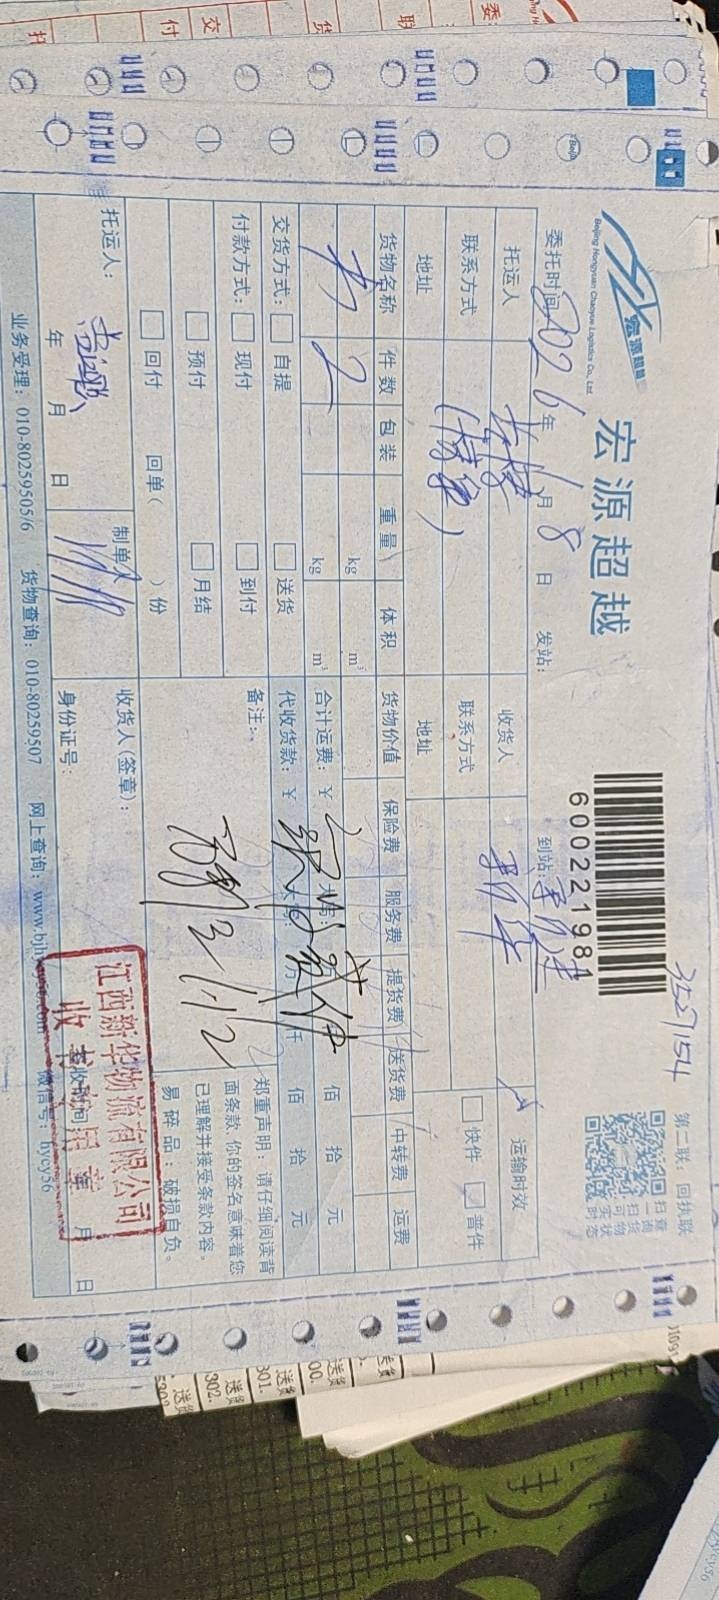 宏源超越
Beijing Hongyuan Chaoyue Logistics Co., Ltd.
宏源超越
600221981
3527154
第二联：回执联
扫一扫可实时
查询货物状态
委托时间 2026年 1月 8日 发站： 到站：
托运人
收货人
运输时效
联系方式
联系方式
快件 普件
地址
地址
货物名称 件数 包装 重量 体积 货物价值 保险费 服务费 提货费 送货费 中转费 运费
书 2 kg m³
kg m³
合计运费：￥ 大写： 佰 拾 元
交货方式： 自提 送货
代收货款：￥ 大写： 万 仟 佰 拾 元
付款方式： 现付 到付
预付 月结
回付 回单（ ）份
备注：
郑重声明：请仔细阅读背
面条款，你的签名意味着您
已理解并接受条款内容。
易碎品：破损自负。
托运人： 年 月 日
制单人
收货人（签章）：
身份证号： 签收时间： 年 月 日
江西新华物流有限公司
收书专用章
业务受理：010-80259505/6 货物查询：010-80259507 网上查询：www.bjhycy56.com 微信号：hycy56